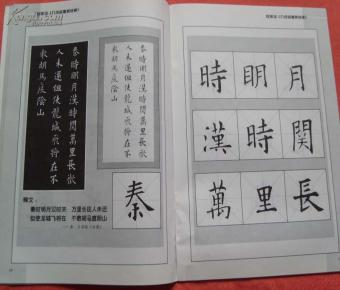 秦時明月漢時關萬里長征
人未還但使龍城飛將在不
教胡馬度陰山
秦時明月漢時關萬里長征
人未還但使龍城飛將在不
教胡馬度陰山
秦
释文：
秦时明月汉时关　万里长征人未还
但使龙城飞将在　不教胡马度阴山
月關長
明時里
時漢萬